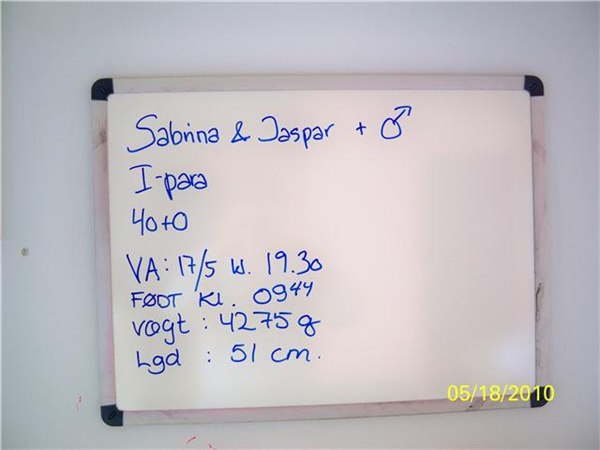 Sabrina & Jaspar + ♂
I-para
40+0
VA: 17/5 kl. 19.30
FØDT kl. 09⁴⁴
vægt : 4275 g
Lgd : 51 cm.
05/18/2010